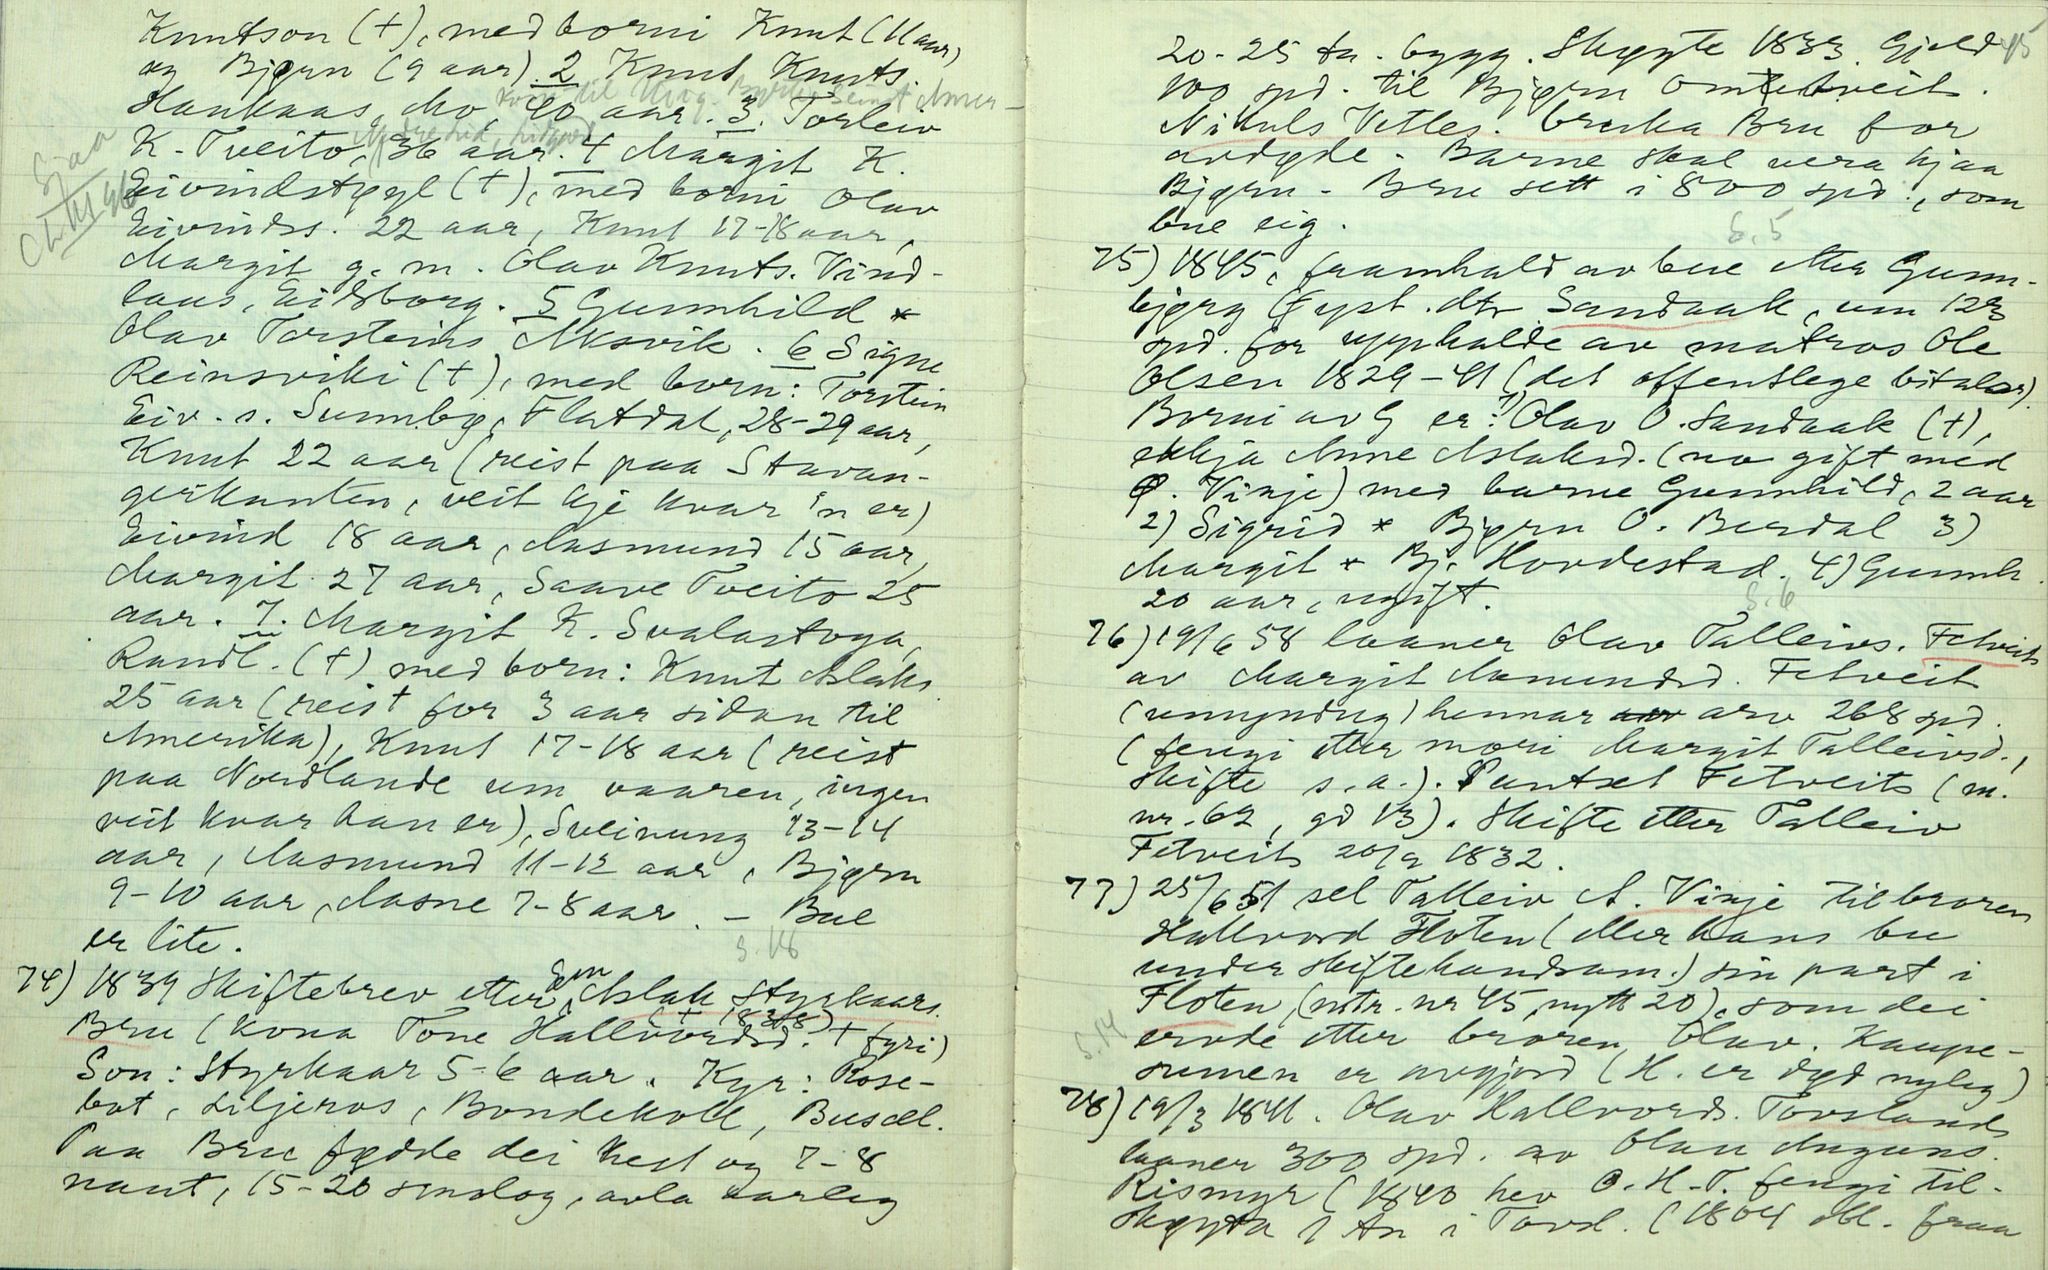 Knutson (+), med borni Knut (11 aar)
og Bjørn (9 aar). 2 Knut Knuts.
Haukaas, Mo, 40 aar. 3. Torleiv
K. Tveito, 36 aar. 4 Margit K.
Eivindstøyl (+), med borni Olav
Eivinds. 22 aar, Knut 17-18 aar,
Margit g. m. Olav Knuts. Vind-
laus, Eidsborg. 5 Gunnhild *
Olav Torsteins Aksvik. 6 Signe
Reinsviki (+), med born: Torstein
Eiv. s. Sunnbø, Flatdal, 28-29 aar,
Knut 22 aar (reist paa Stavan-
gerkanten, veit kje kvar 'n er)
Eivind 18 aar, Aasmund 15 aar,
Margit 27 aar, Saave Tveito 25
aar. 7. Margit K. Svalastoga,
Raudl. (+) med born: Knut Aslaks.
25 aar (reist for 3 aar sidan til
Amerika), Knut 17-18 aar (reist
paa Nordlande um vaaren, ingen
veit kvar han er), Sveinung 13-14
aar, Aasmund 11-12 aar, Bjørn
9-10 aar, Aasne 7-8 aar. - Bue
er lite.
S. 18
74) 1839 skiftebrev etter Aslak Styrkaars.
(+ 1838)
Bru (kona Tone Hallvordsd. + fyri)
Son: Styrkaar 5-6 aar. Kyr: Rose-
bot, Liljeros, Bondekoll, Busdl.
Paa Bru fødde dei hest og 7-8
naut, 15-20 smalog, avla aarleg
Sjaa
45
20-25 tn. bygg. Skøyte 1833. Gjeld
100 spd. til Bjørn Omtveit.
Nikuls Vetles. bruka Bru for
avdøde. Barne skal vera hjaa
Bjørn. Bru sett i 800 spd., som
bue eig.
S. 5
75) 1845, framhald av bue etter Gunn-
bjørg Øyst. dtr Sandaak, um 123
spd. for upphalde av matros Ole
Olsen 1829-41 (det offentlege bitalar).
Borni av G er: 1) Olav O. Sandaak (+),
ekkja Anne Aslaksd. (no gift med
Ø. Vinje) med barne Gunnhild, 2 aar
2) Sigrid * Bjørn O. Berdal 3)
Margit * Bj. Hovdestad. 4) Gunnh.
20 aar, ugift.
S. 6
76) 19/6 58 laaner Olav Talleivs. Fetveit
av Margit Aamundsd. Fetveit
(umyndug) hennar arv 268 spd.
(fengi etter mori Margit Talleivsd.,
skifte s. a.). Pantset Fetveit (m.
nr. 62, gd 13). Skifte etter Talleiv
Fetveit 20/9 1832.
77) 25/6 51 sel Talleiv A. Vinje til broren
Hallvord Floten (eller hans bu
under skiftehandsam.) sin part i
Floten, (mtr. nr 45, nytt 20), som dei
S. 14
ervde etter broren Olav. Kaupe-
sumen er avgjord (H. er død nyleg)
78) 19/3 1841. Olav Hallvords. Tovsland
laaner 300 spd. av Olav Auguns.
Rismyr (1840 hev O. H. T. fengi til-
skøyta 1 tn i Tovsl. (1804 obl. fraa